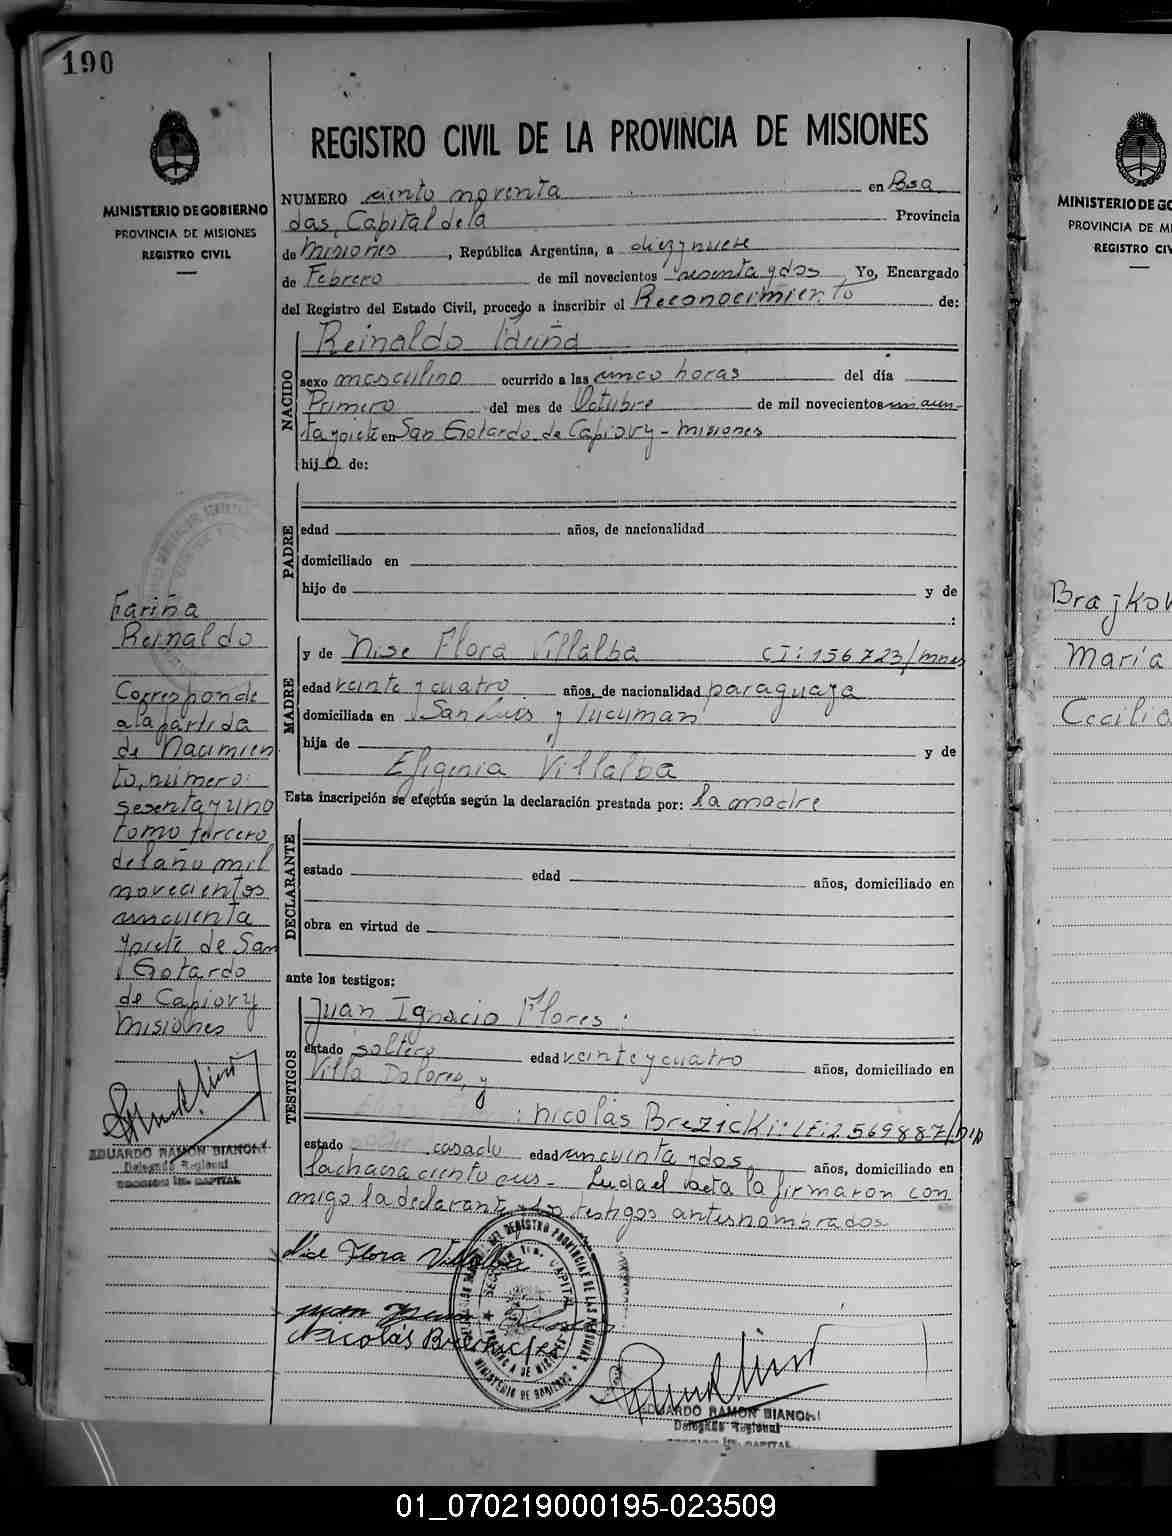 190
MINISTERIO DE GOBIERNO
PROVINCIA DE MISIONES
REGISTRO CIVIL
Fariña
Reinaldo
Corresponde
a la partida
de Nacimien
to, número:
sesenta y uno
tomo tercero
del año mil
novecientos
cincuenta
y siete de San
Gotardo
de Capiovy
Misiones
EDUARDO RAMON BIANCHI
Delegado Regional
SECCION 1ra. CAPITAL
REGISTRO CIVIL DE LA PROVINCIA DE MISIONES
NUMERO ciento noventa en Posa
das, Capital de la Provincia
de Misiones, República Argentina, a diez y nueve
de Febrero de mil novecientos sesenta y dos Yo, Encargado
del Registro del Estado Civil, procedo a inscribir el Reconocimiento de:
NACIDO
Reinaldo Fariña
sexo masculino ocurrido a las cinco horas del día
Primero del mes de Octubre de mil novecientos cincuen-
ta y siete en San Gotardo de Capiovy - Misiones
hijo de:
PADRE
edad años, de nacionalidad
domiciliado en
hijo de y de
:
MADRE
y de Nise Flora Villalba CI: 156723/mnes
edad veinte y cuatro años, de nacionalidad paraguaya
domiciliada en San Luis y Tucuman
hija de y de
Efigenia Villalba
Esta inscripción se efectúa según la declaración prestada por: la madre
DECLARANTE
estado edad años, domiciliado en
obra en virtud de
ante los testigos:
TESTIGOS
Juan Ignacio Flores
estado soltero edad veinte y cuatro años, domiciliado en
Villa Dolores, y
: Nicolás Brezicki: LE: 2569887/
estado casado edad cincuenta y dos años, domiciliado en
la chacra ciento seis - Leída el acta la firmaron con
migo la declarante y los testigos antes nombrados
Nise Flora Villalba
Juan
Nicolás
REGISTRO PROVINCIAL DE LAS PERSONAS
SECCION 1ra. CAPITAL
PROVINCIA DE MISIONES
MINISTERIO DE GOBIERNO
EDUARDO RAMON BIANCHI
Delegado Regional
SECCION 1ra. CAPITAL
MINISTERIO DE GO
PROVINCIA DE MI
REGISTRO CIV
Brajkov
María
Cecilia
01_070219000195-023509